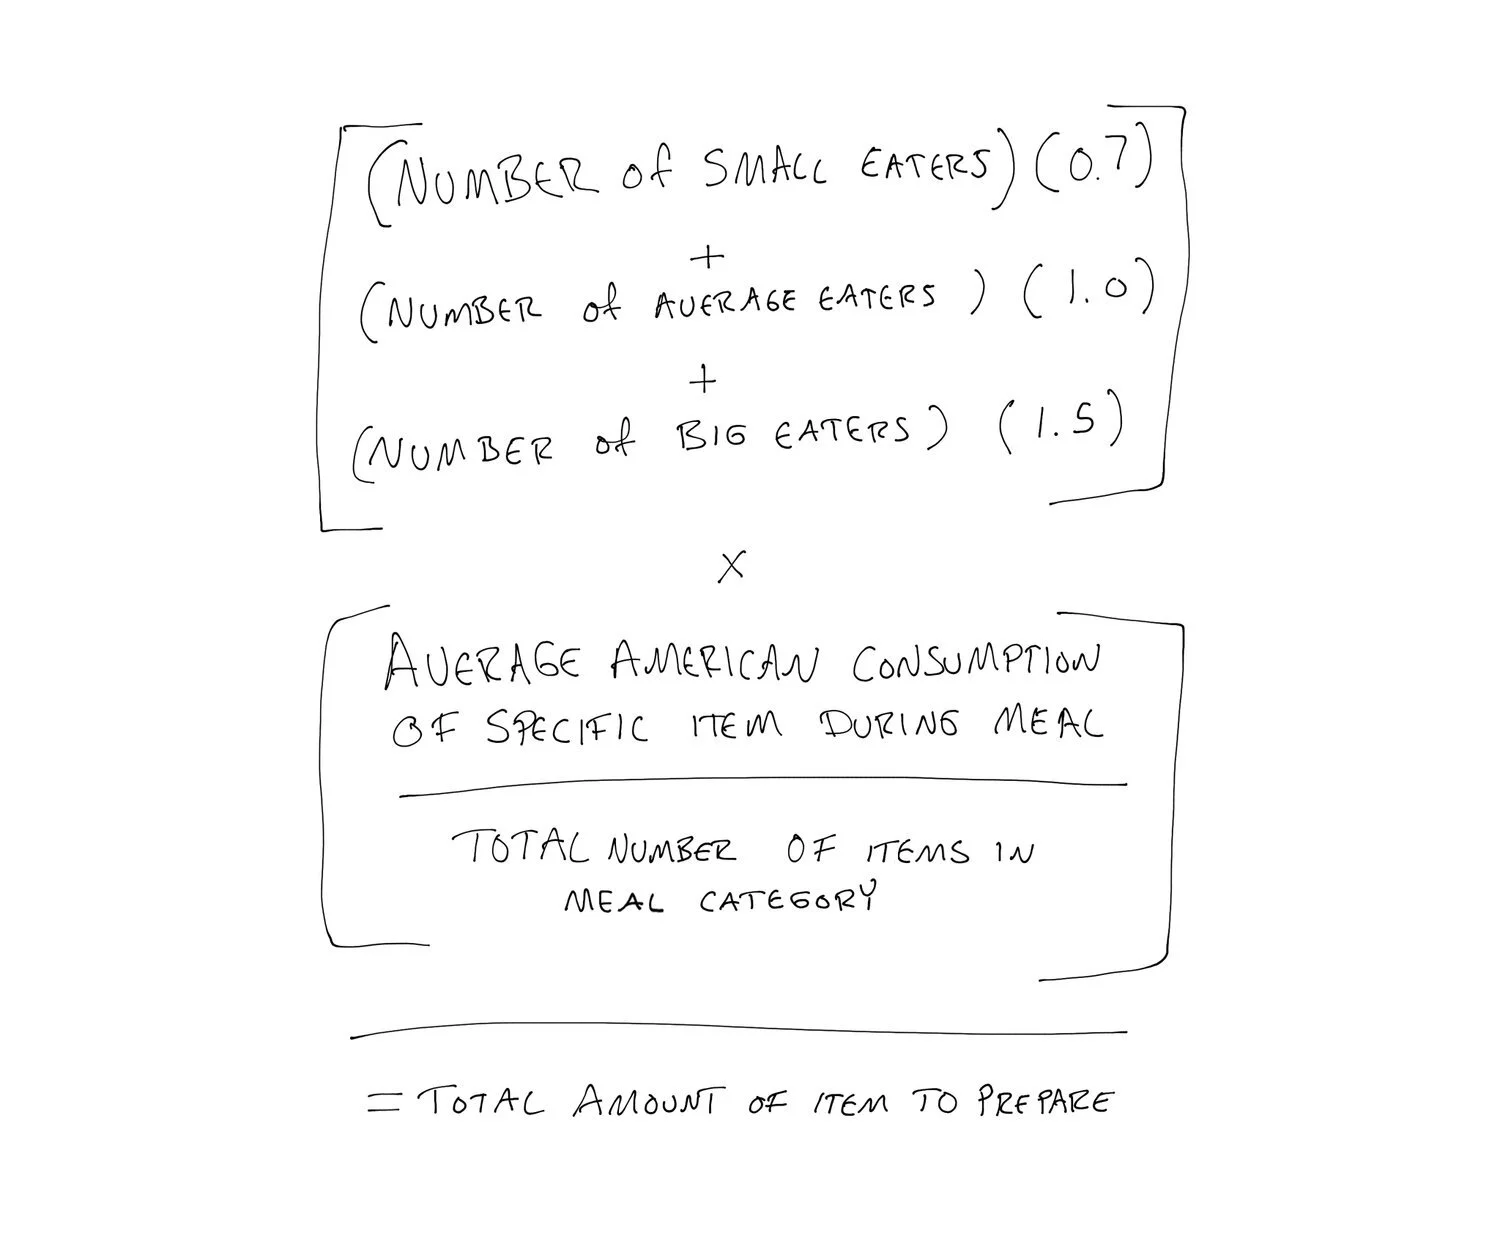 (NUMBER of SMALL EATERS) (0.7)
+
(NUMBER of AVERAGE EATERS) (1.0)
+
(NUMBER of BIG EATERS) (1.5)
X
AVERAGE AMERICAN CONSUMPTION
OF SPECIFIC ITEM DURING MEAL
TOTAL NUMBER OF ITEMS IN
MEAL CATEGORY
= TOTAL AMOUNT OF ITEM TO PREPARE